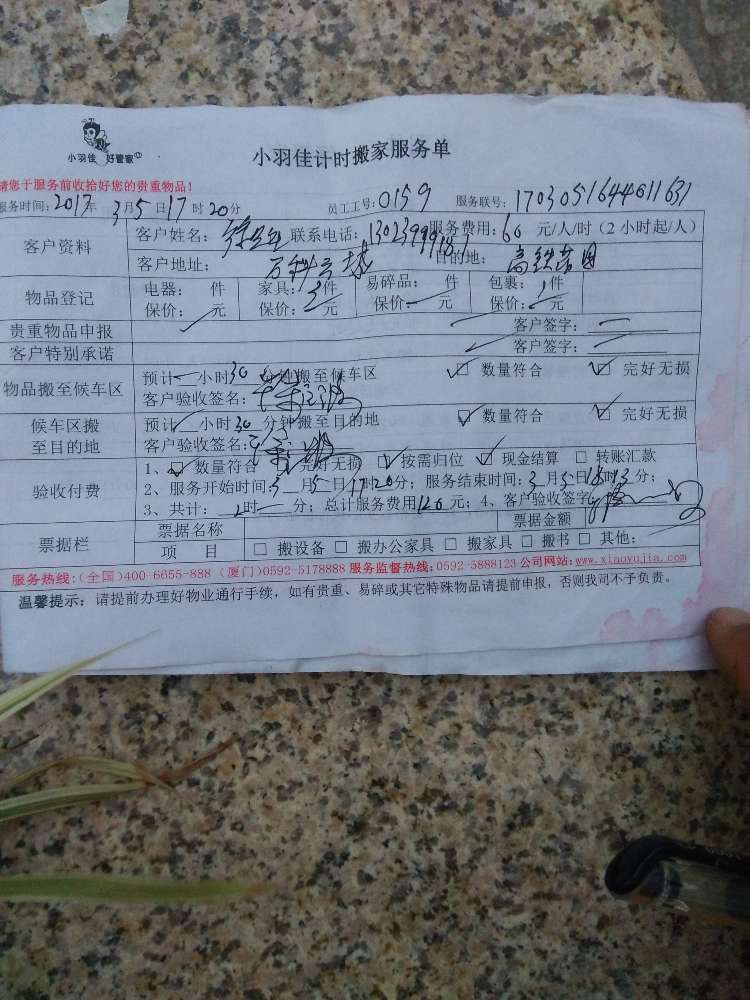 小羽佳 好管家
小羽佳计时搬家服务单
请您于服务前收拾好您的贵重物品!
服务时间: 2017年 3月5日17时20分 员工工号: 0159 服务联号: 1703051644011631
客户资料 客户姓名: 联系电话: 服务费用: 60 元/人/时(2 小时起/人)
客户地址: 万科广场 目的地: 高铁
物品登记 电器: 件 家具: 3件 易碎品: 件 包裹: 1件
保价: 元 保价: 元 保价: 元 保价: 元
贵重物品申报 客户签字:
客户特别承诺 客户签字:
物品搬至候车区 预计 小时30分钟搬至候车区 数量符合 完好无损
客户验收签名:
候车区搬至目的地 预计 小时30分钟搬至目的地 数量符合 完好无损
客户验收签名:
验收付费 1、 数量符合 完好无损 按需归位 现金结算 转账汇款
2、服务开始时间: 3月5日17时20分; 服务结束时间: 3月5日18时13分;
3、共计: 时 分; 总计服务费用120元; 4、客户验收签字:
票据栏 票据名称 票据金额
项 目 搬设备 搬办公家具 搬家具 搬书 其他:
服务热线:(全国)400-6655-888 (厦门)0592-5178888 服务监督热线:0592-5888123 公司网站:www.xiaoyujia.com
温馨提示: 请提前办理好物业通行手续, 如有贵重、易碎或其它特殊物品请提前申报, 否则我司不予负责。